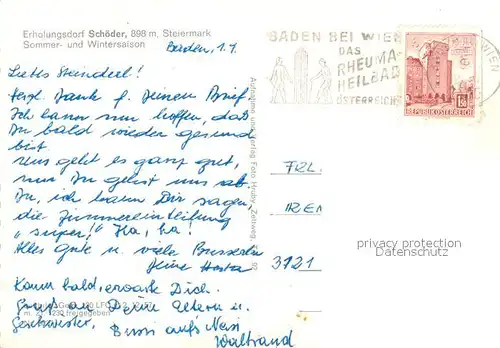 Erholungsdorf Schöder, 898 m, Steiermark
Sommer- und Wintersaison
Baden, 1.7.
Liebes Steinderl!
Herzl. Dank f. Deinen Brief.
Ich kann nur hoffen, daß
Du bald wieder gesund
bist.
Uns geht es ganz gut,
nur Du gehst uns ab.
Du, ich kann Dir sagen,
die Zimmereinteilung
"super!" Ha, ha!
Alles Gute u. viele Busserln
Deine Herta
Kaum bald, erwarte Dich.
Gruß an Deine Eltern u.
Geschwister.
Bussi aufs Nasi
Waltraud
BADEN BEI WIEN
DAS
RHEUMA-
HEILBAD
ÖSTERREICHS
REPUBLIK ÖSTERREICH
FRL.
3121
privacy protection
Datenschutz